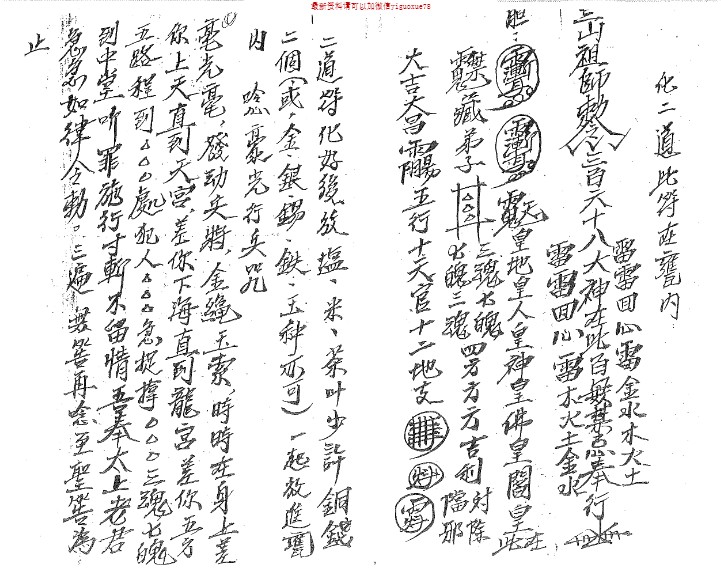 最新资料请可以加微信yiguoxue78
化二道此符在甕内
雷雷回心雷金水木火土
山祖師勅令三百六十八大神在此百無禁忌奉行
雷雷回心雷木火土金水
胆
天皇地皇人皇神皇佛皇閻皇在此
藏弟子
三魂七魄
七魄三魂
四方方方吉利
封除
當邪
大吉大昌
五行十天官十二地支
二道符化好後放塩、米、茶叶少許銅錢
二個(或、金、銀、錫、鉄、玉种亦可)一起放進甕
内
唸毫光行兵咒
毫光毫、發动兵將、金繩玉索時時在身上差
你上天直到天宮、差你下海直到龍宮差你五方
五路程到○○○處犯人○○○急捉拿○○○三魂七魄
到中堂听罪施行寸斬不留情吾奉太上老君
急急如律令勅。三遍無筶再唸至聖筶為
止